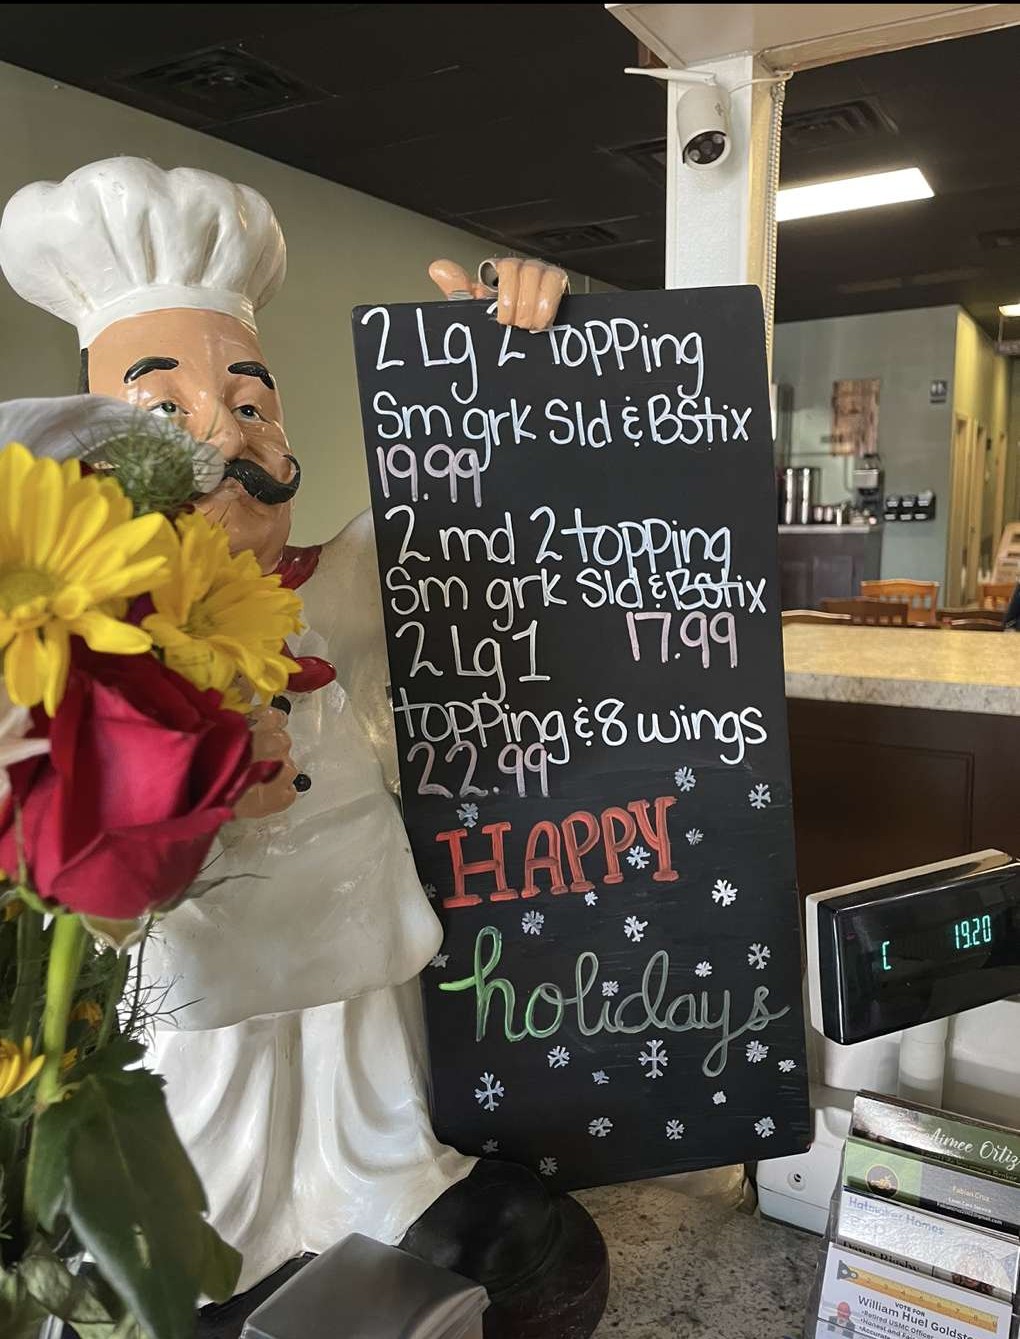 2 Lg 2 Topping
Sm grk Sld & BStix
19.99
2 md 2 topping
Sm grk Sld & BStix
2 Lg 1 17.99
topping & 8 wings
22.99
HAPPY
holidays
[ 19.20
Aimee Ortiz
Fabian Cruz
Lawn Care Service
Homes
VOTE FOR
William Huel
•Retired USMC
•Honest and